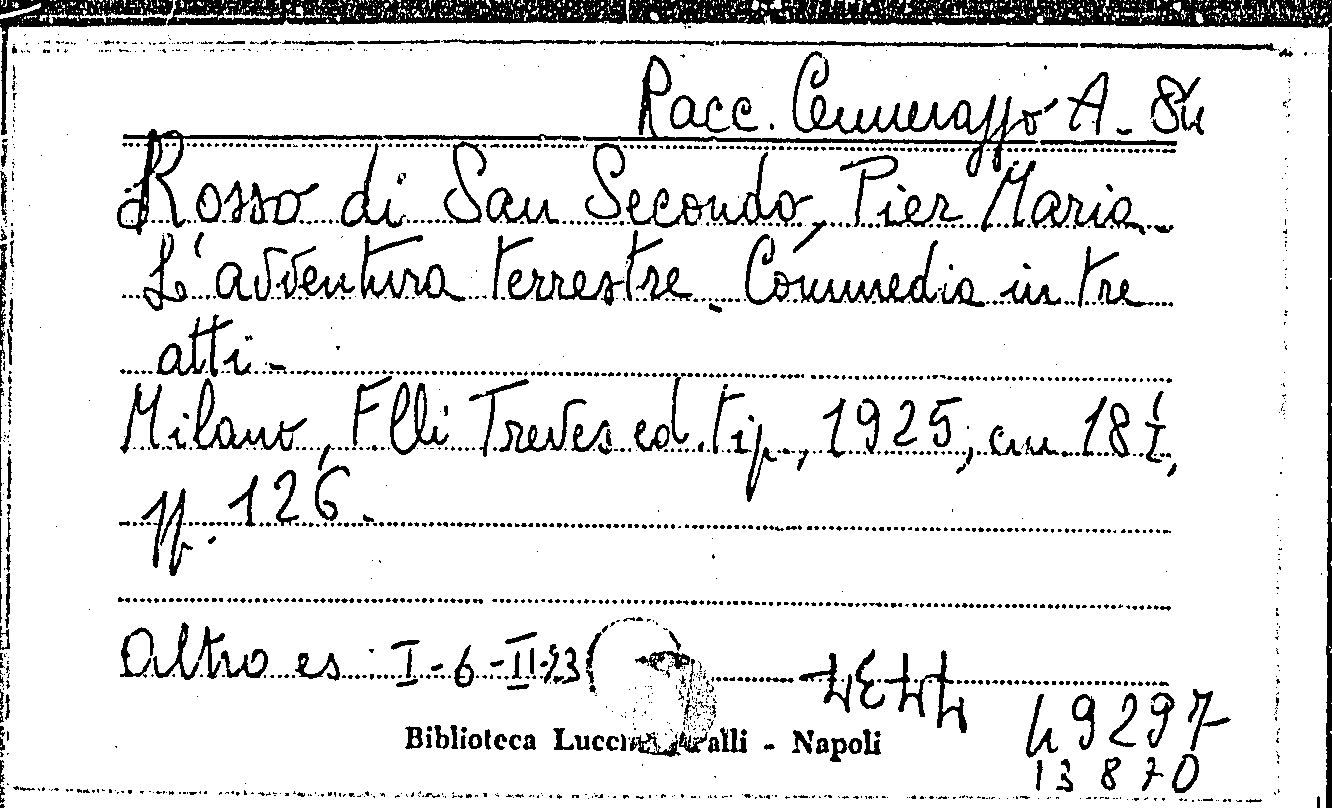 Racc. Cennerazzo A. 84
Rosso di San Secondo, Pier Maria
L'avventura terrestre. Commedia in tre
atti -
Milano, F.lli Treves ed. tip., 1925, cm. 18½,
pp. 126.
Altro es: I-6-II-23
Biblioteca Lucch alli - Napoli
49297
13870